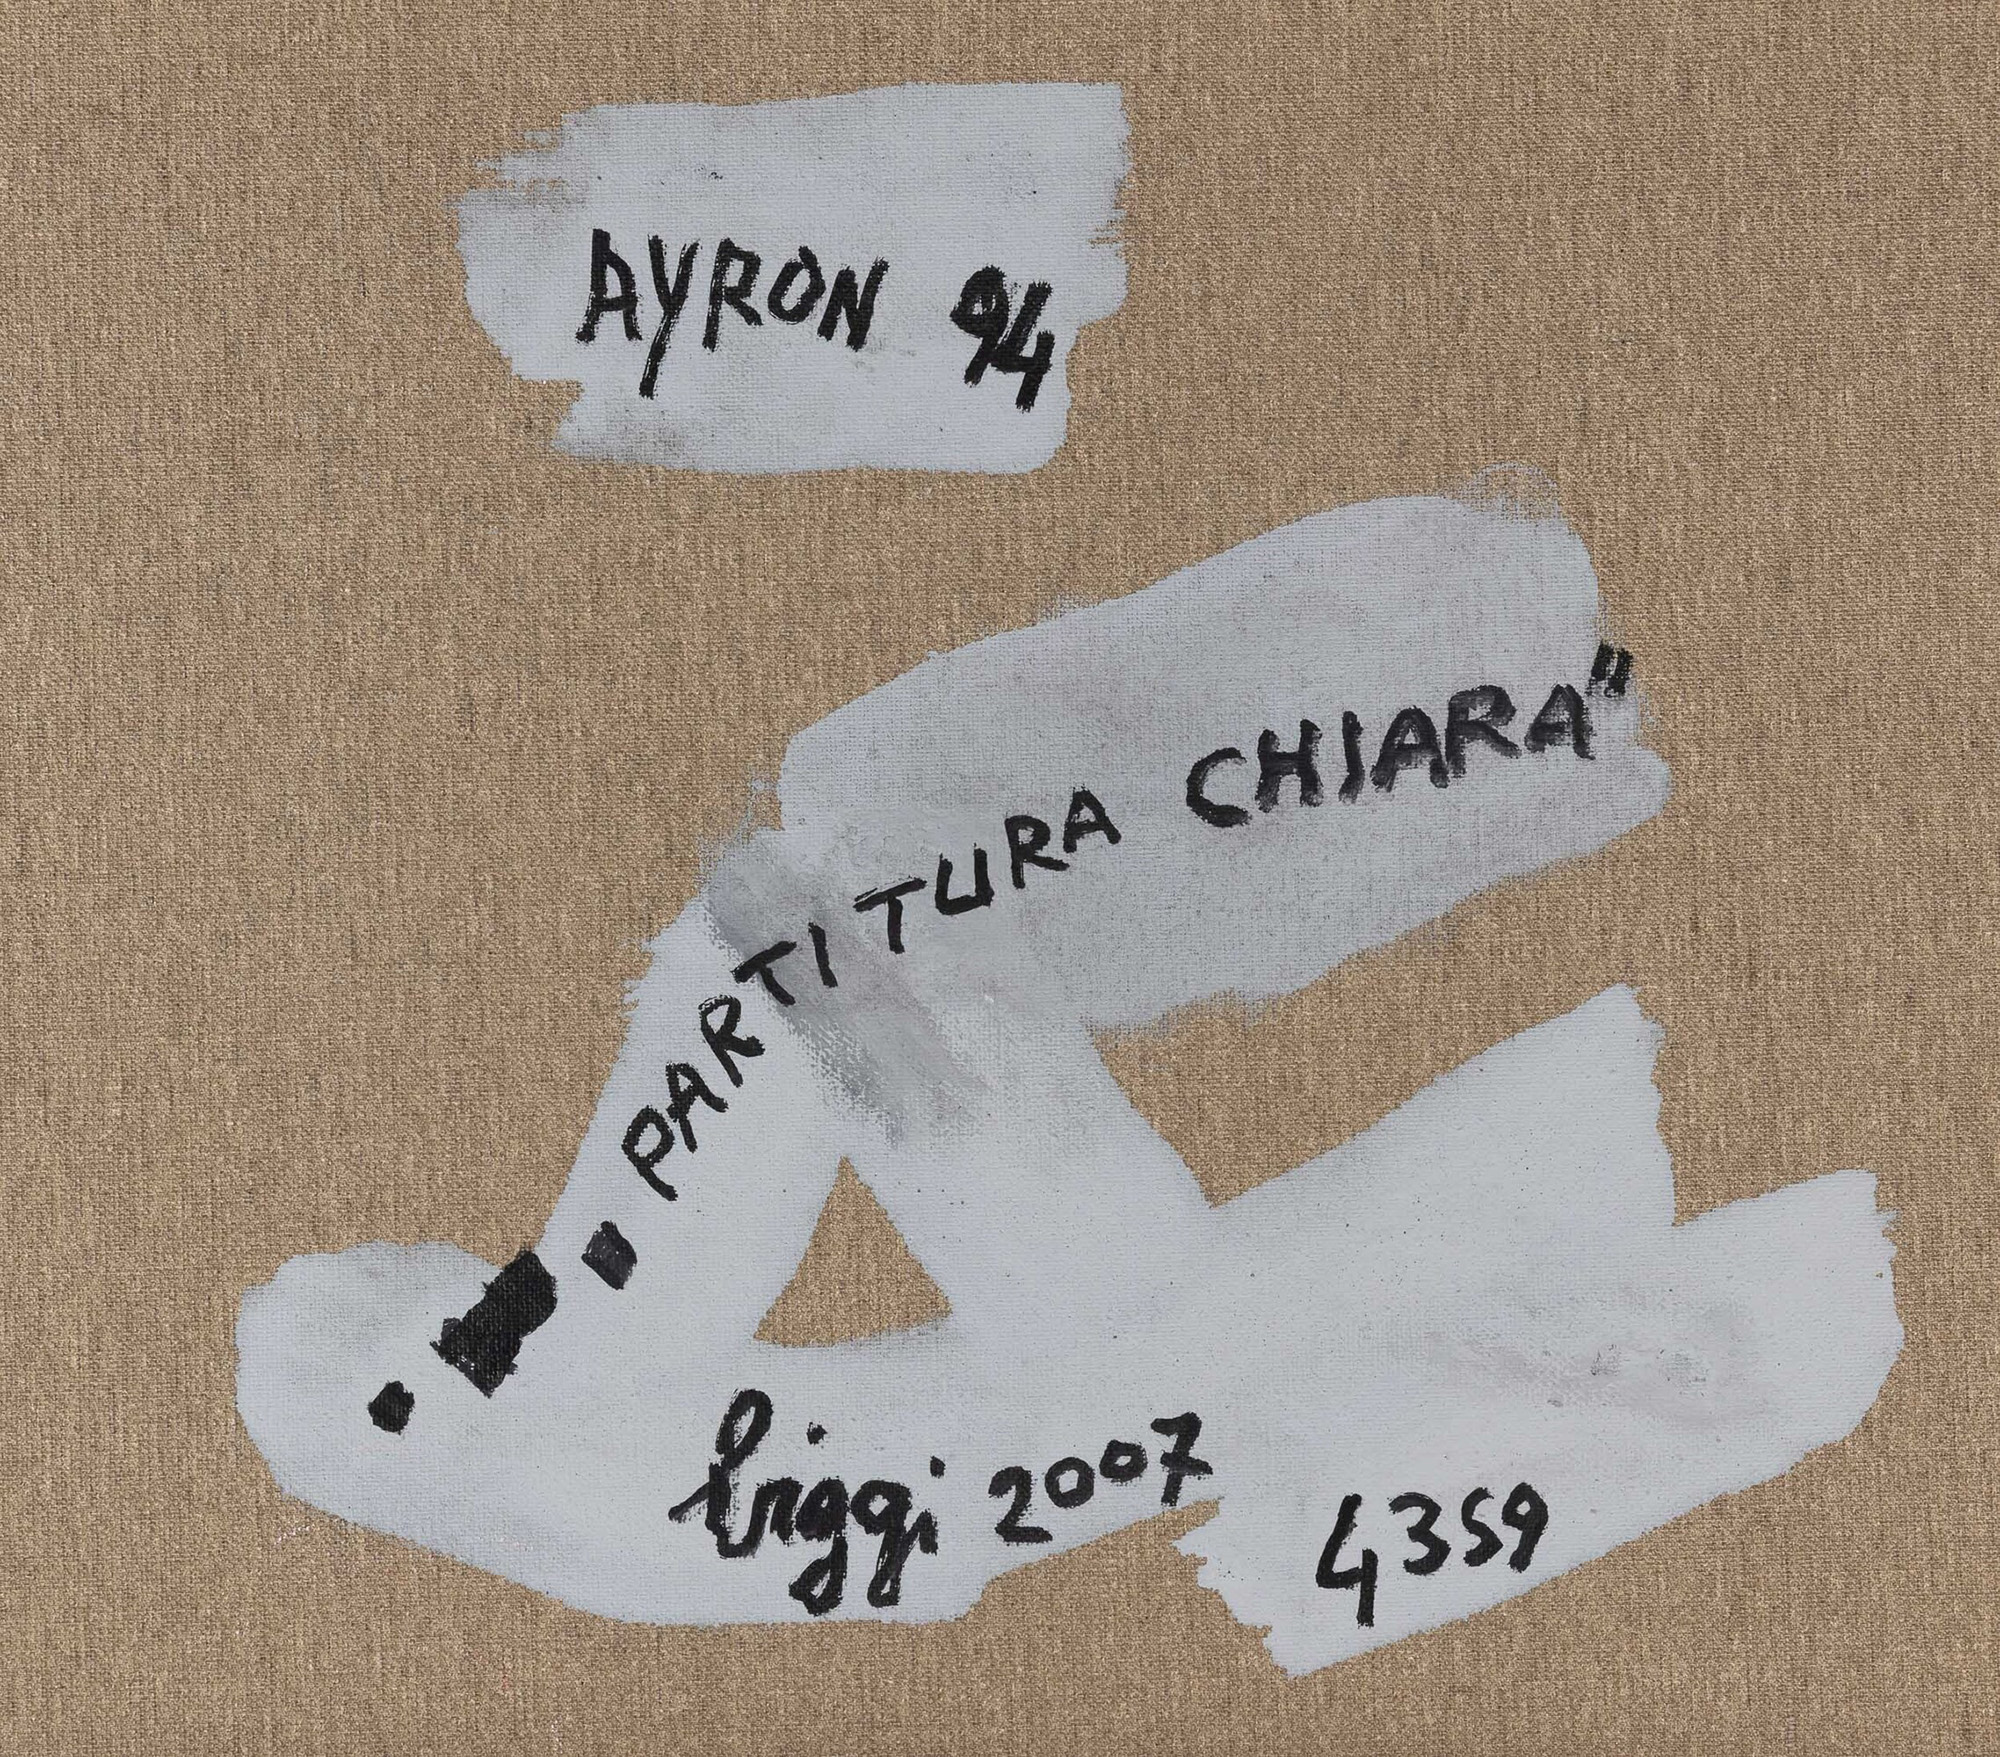 AYRON 94
PARTITURA CHIARA"
biggi 2007
4359